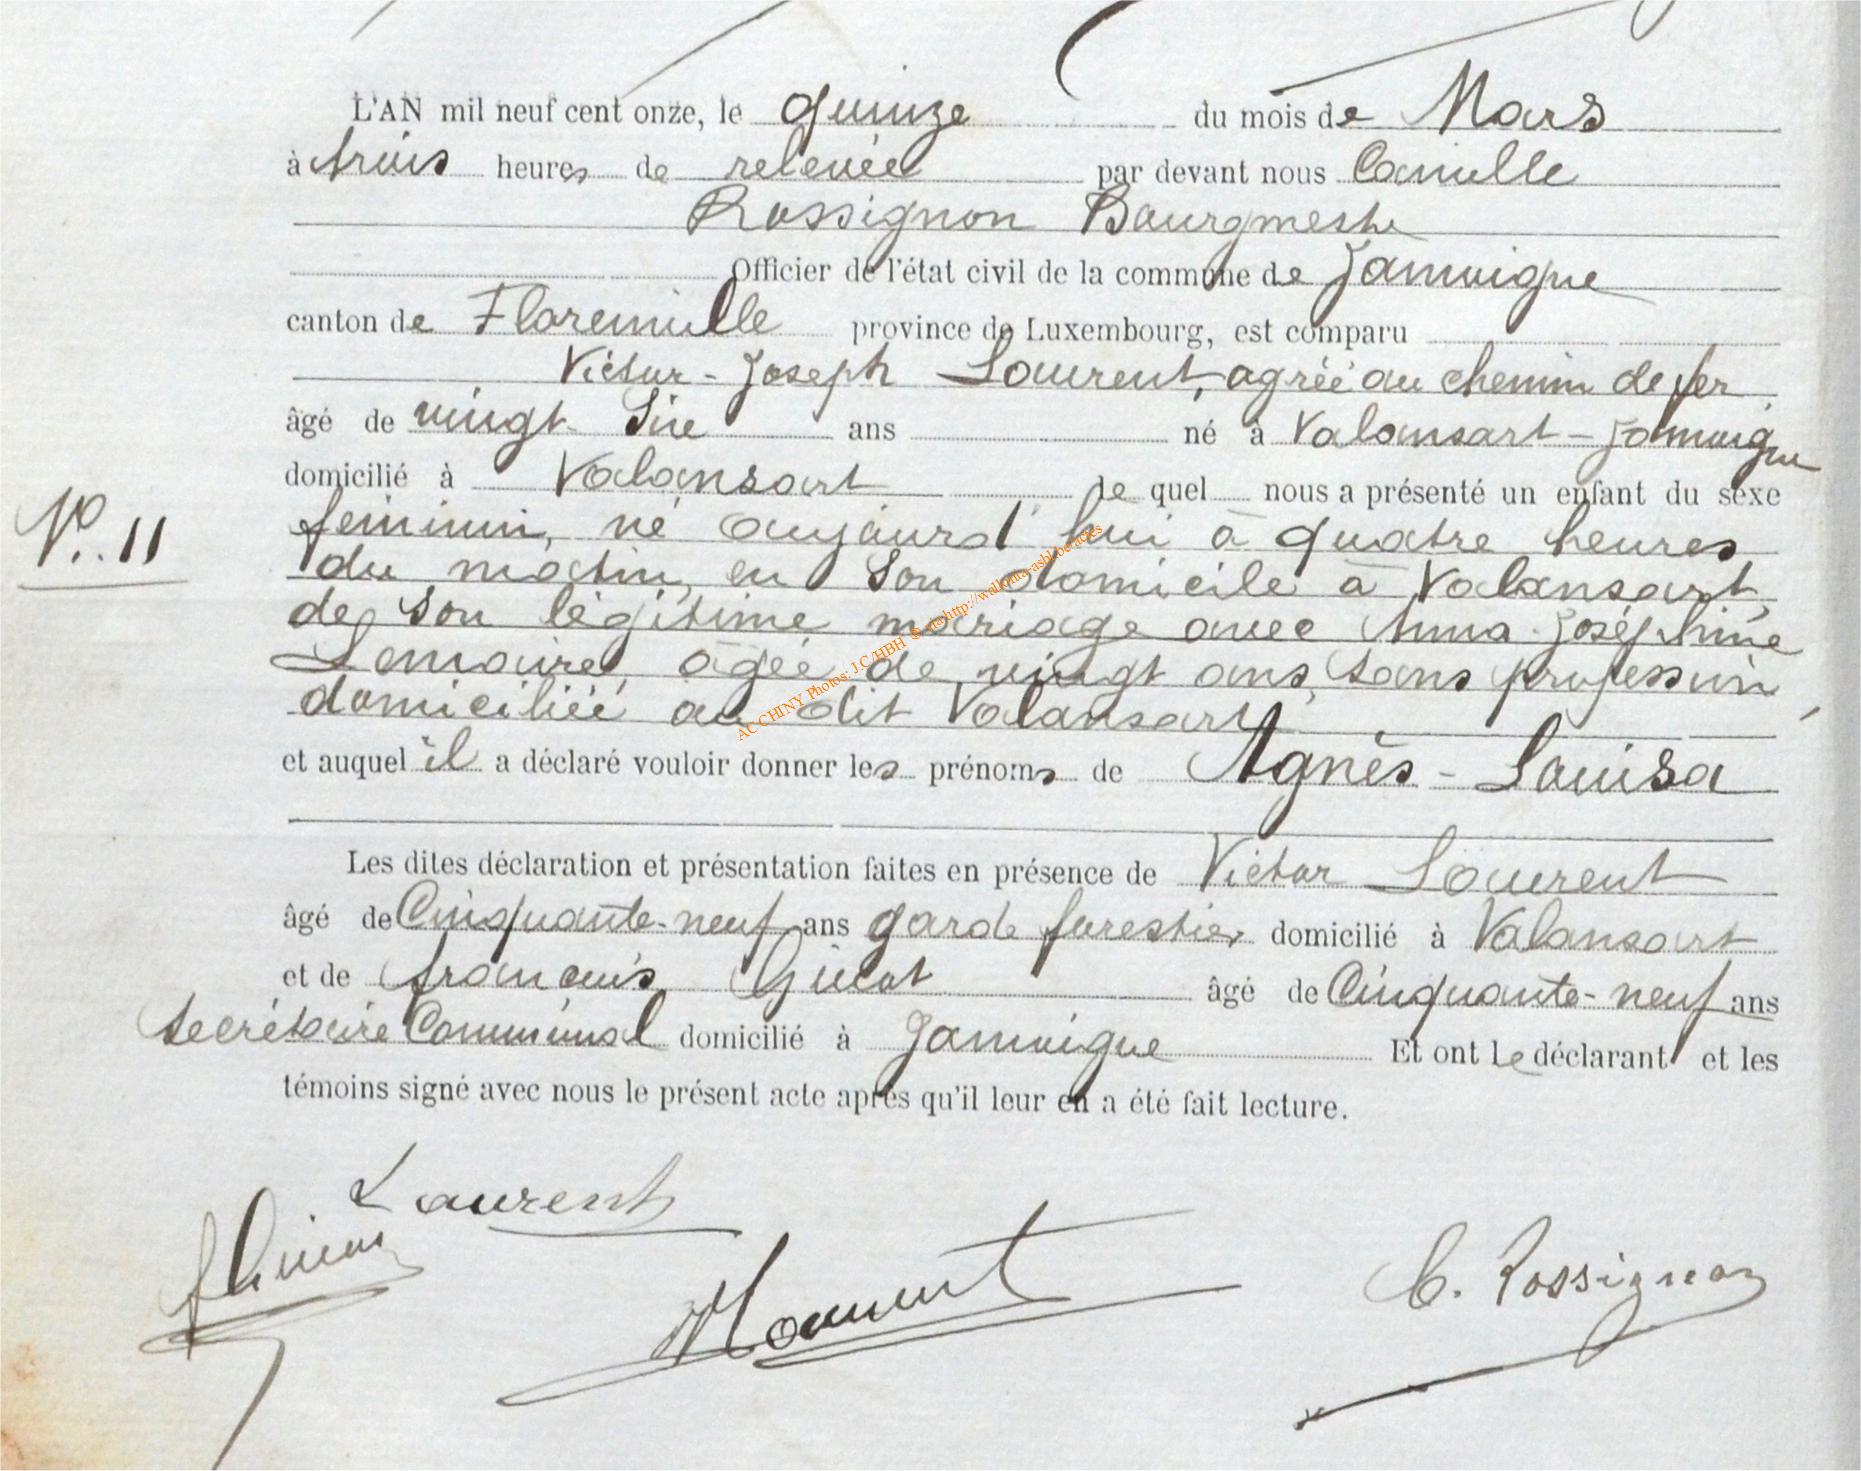 L'AN mil neuf cent onze, le quinze du mois de Mars
à trois heures de relevée par devant nous Camille
Rossignon Bourgmestre
Officier de l'état civil de la commune de Jamoigne
canton de Florenville province de Luxembourg, est comparu
Victor-Joseph Laurent, agréé au chemin de fer
âgé de vingt-six ans né à Valansart-Jamoigne
domicilié à Valansart le quel nous a présenté un enfant du sexe
N° 11
féminin, né aujourd'hui à quatre heures
du matin, en son domicile à Valansart,
de son légitime mariage avec Anna-Joséphine
Lemaire, âgée de vingt ans, sans profession,
domiciliée au dit Valansart,
et auquel il a déclaré vouloir donner les prénoms de Agnès-Louisa
Les dites déclaration et présentation faites en présence de Victor Laurent
âgé de Cinquante-neuf ans garde forestier domicilié à Valansart
et de François Gicot âgé de Cinquante-neuf ans
Secrétaire Communal domicilié à Jamoigne Et ont le déclarant et les
témoins signé avec nous le présent acte après qu'il leur en a été fait lecture.
Laurent
C. Rossignon
AC CHINY Photos: J.C/HBH